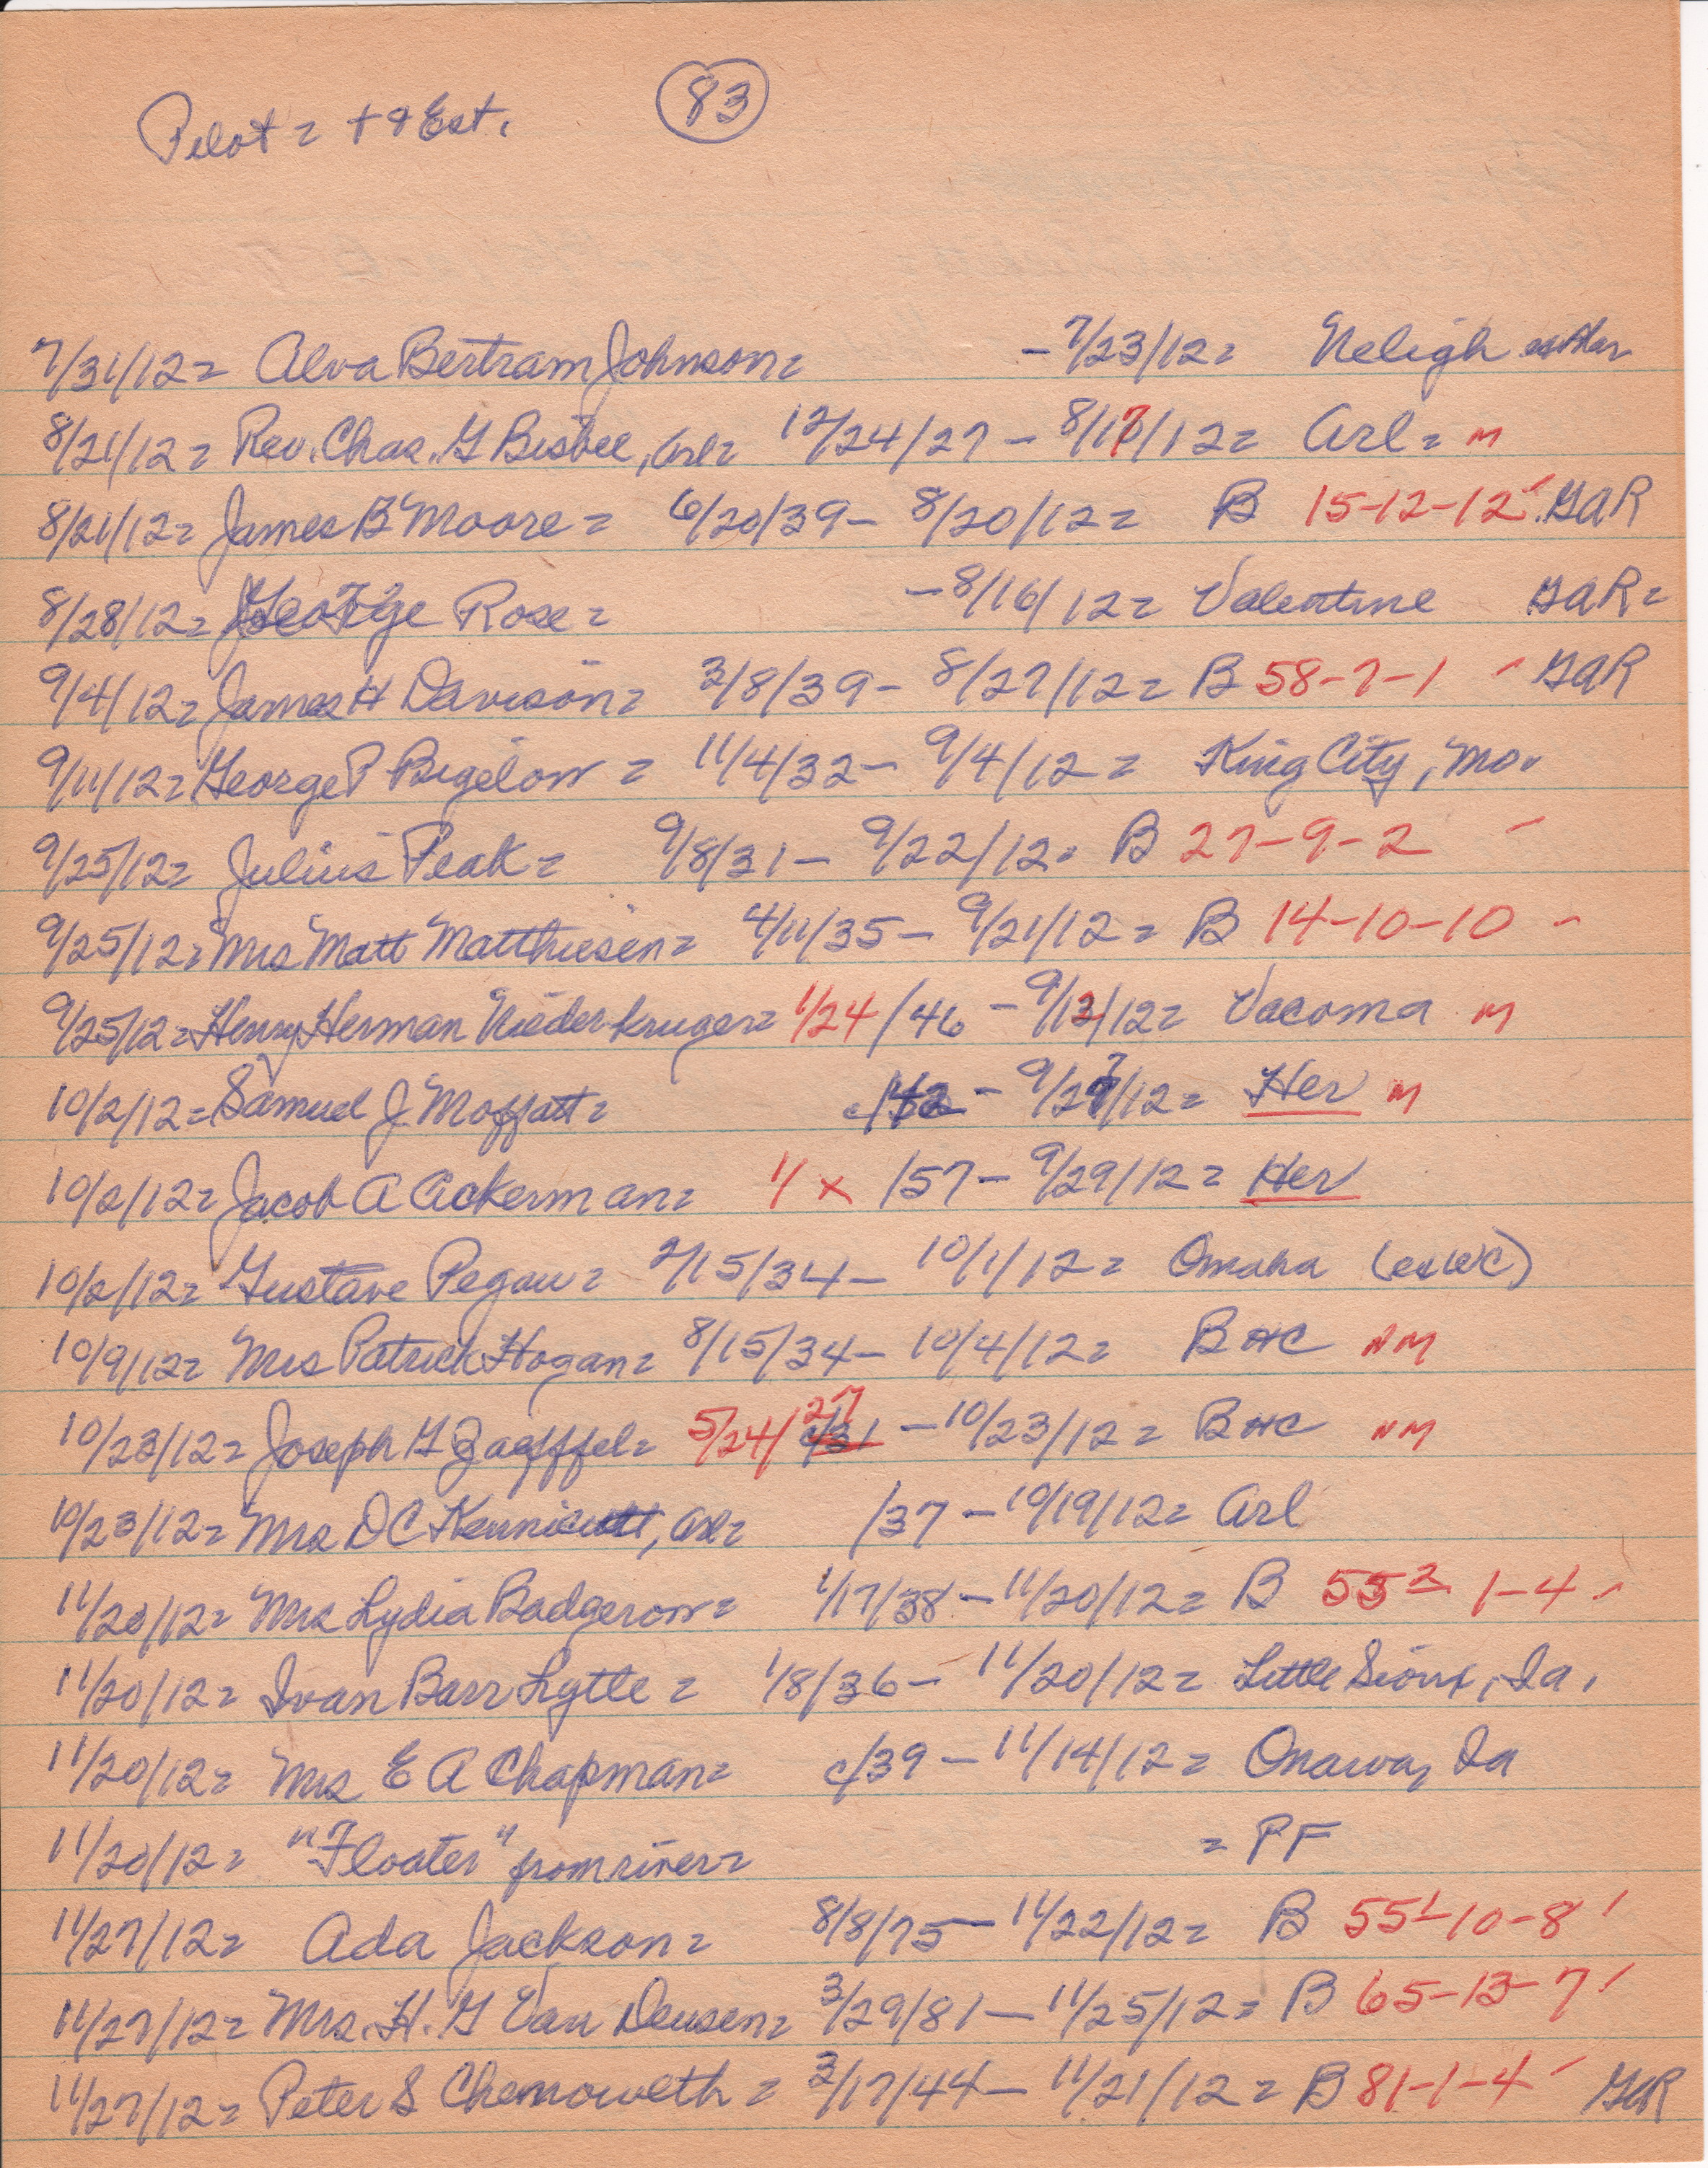 83
Pilot = + & Est.
7/31/12 = Alva Bertram Johnson = - 7/23/12 = Neligh
8/21/12 = Rev. Chas. G Bisbee, Arl = 12/24/27 - 8/17/12 = Arl = M
8/21/12 = James B Moore = 6/20/39 - 8/20/12 = B 15-12-12 GAR
8/28/12 = George Rose = - 8/16/12 = Valentine GAR =
9/4/12 = James H Davison = 3/8/39 - 8/27/12 = B 58-7-1 GAR
9/11/12 = George P Bigelow = 11/4/32 - 9/4/12 = King City, Mo.
9/25/12 = Julius Peak = 9/8/31 - 9/22/12 = B 27-9-2
9/25/12 = Mrs Matt Matthiesen = 4/11/35 - 9/21/12 = B 14-10-10
9/25/12 = Henry Herman Niederkruger = 1/24/46 - 9/13/12 = Vacoma M
10/2/12 = Samuel J. Moffatt = - 9/27/12 = Her M
10/2/12 = Jacob A Ackerman = 11 x /57 - 9/29/12 = Her
10/2/12 = Gustave Pegau = 2/15/34 - 10/1/12 = Omaha (exWC)
10/9/12 = Mrs Patrick Hogan = 8/15/34 - 10/4/12 = BHC NM
10/23/12 = Joseph G Zaepffel = 5/24/27 c/31 - 10/23/12 = BHC NM
10/23/12 = Mrs DC Kennicutt, Arl = /37 - 10/19/12 = Arl
11/20/12 = Mrs Lydia Badgerow = 1/17/38 - 11/20/12 = B 55² 1-4
11/20/12 = Ivan Barr Lytle = 1/8/36 - 11/20/12 = Little Sioux, Ia.
11/20/12 = Mrs E A Chapman = c/39 - 11/14/12 = Onawa, Ia
11/20/12 = "Floater" from river = = PF
11/27/12 = Ada Jackson = 8/8/75 - 11/22/12 = B 55¹-10-8
11/27/12 = Mrs. H. G Van Deusen = 3/29/81 - 11/25/12 = B 65-13-7
11/27/12 = Peter S Chenoweth = 3/17/44 - 11/21/12 = B 81-1-4 GAR